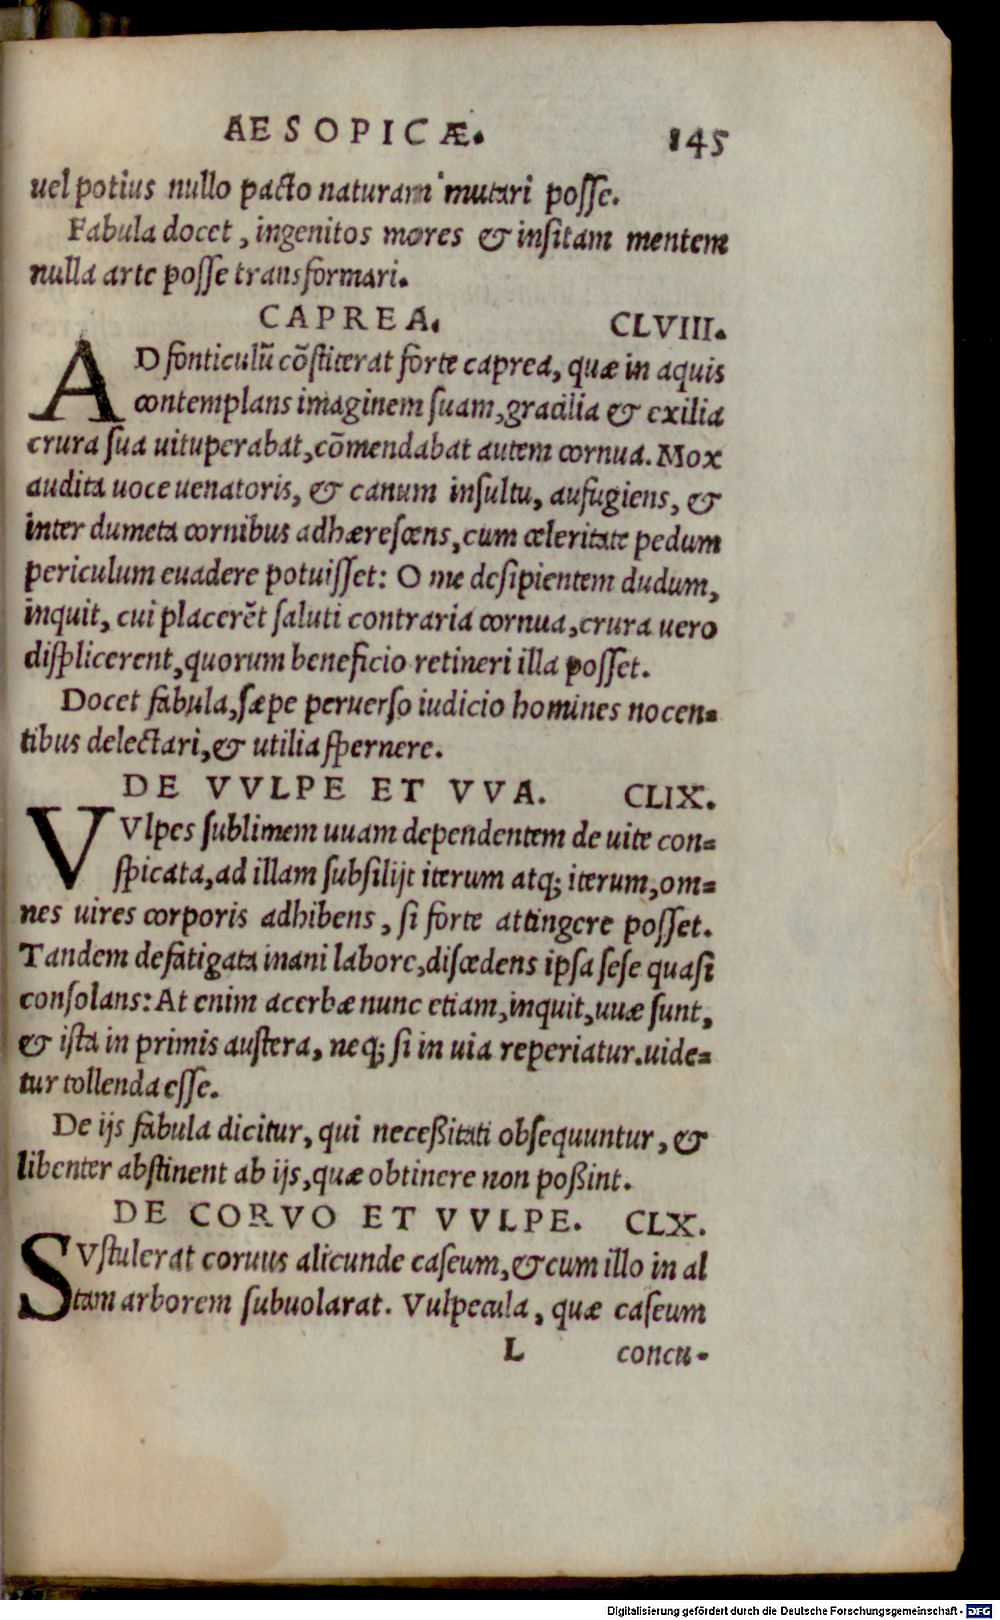 AESOPICÆ. 145
uel potius nullo pacto naturam mutari posse.
Fabula docet, ingenitos mores & insitam mentem
nulla arte posse transformari.
CAPREA. CLVIII.
AD fonticulū cōstiterat forte caprea, quæ in aquis
contemplans imaginem suam, gracilia & exilia
crura sua uituperabat, cōmendabat autem cornua. Mox
audita uoce uenatoris, & canum insultu, aufugiens, &
inter dumeta cornibus adhærescens, cum celeritate pedum
periculum euadere potuisset: O me desipientem dudum,
inquit, cui placerēt saluti contraria cornua, crura uero
displicerent, quorum beneficio retineri illa posset.
Docet fabula, sæpe peruerso iudicio homines nocen=
tibus delectari, & utilia spernere.
DE VVLPE ET VVA. CLIX.
VVlpes sublimem uuam dependentem de uite con=
spicata, ad illam subsilijt iterum atq; iterum, om=
nes uires corporis adhibens, si forte attingere posset.
Tandem defatigata inani labore, discedens ipsa sese quasi
consolans: At enim acerbæ nunc etiam, inquit, uuæ sunt,
& ista in primis austera, neq; si in uia reperiatur. uide=
tur tollenda esse.
De ijs fabula dicitur, qui neceßitati obsequuntur, &
libenter abstinent ab ijs, quæ obtinere non poßint.
DE CORVO ET VVLPE. CLX.
SVstulerat coruus alicunde caseum, & cum illo in al
tam arborem subuolarat. Vulpecula, quæ caseum
L concu-
Digitalisierung gefördert durch die Deutsche Forschungsgemeinschaft - DFG